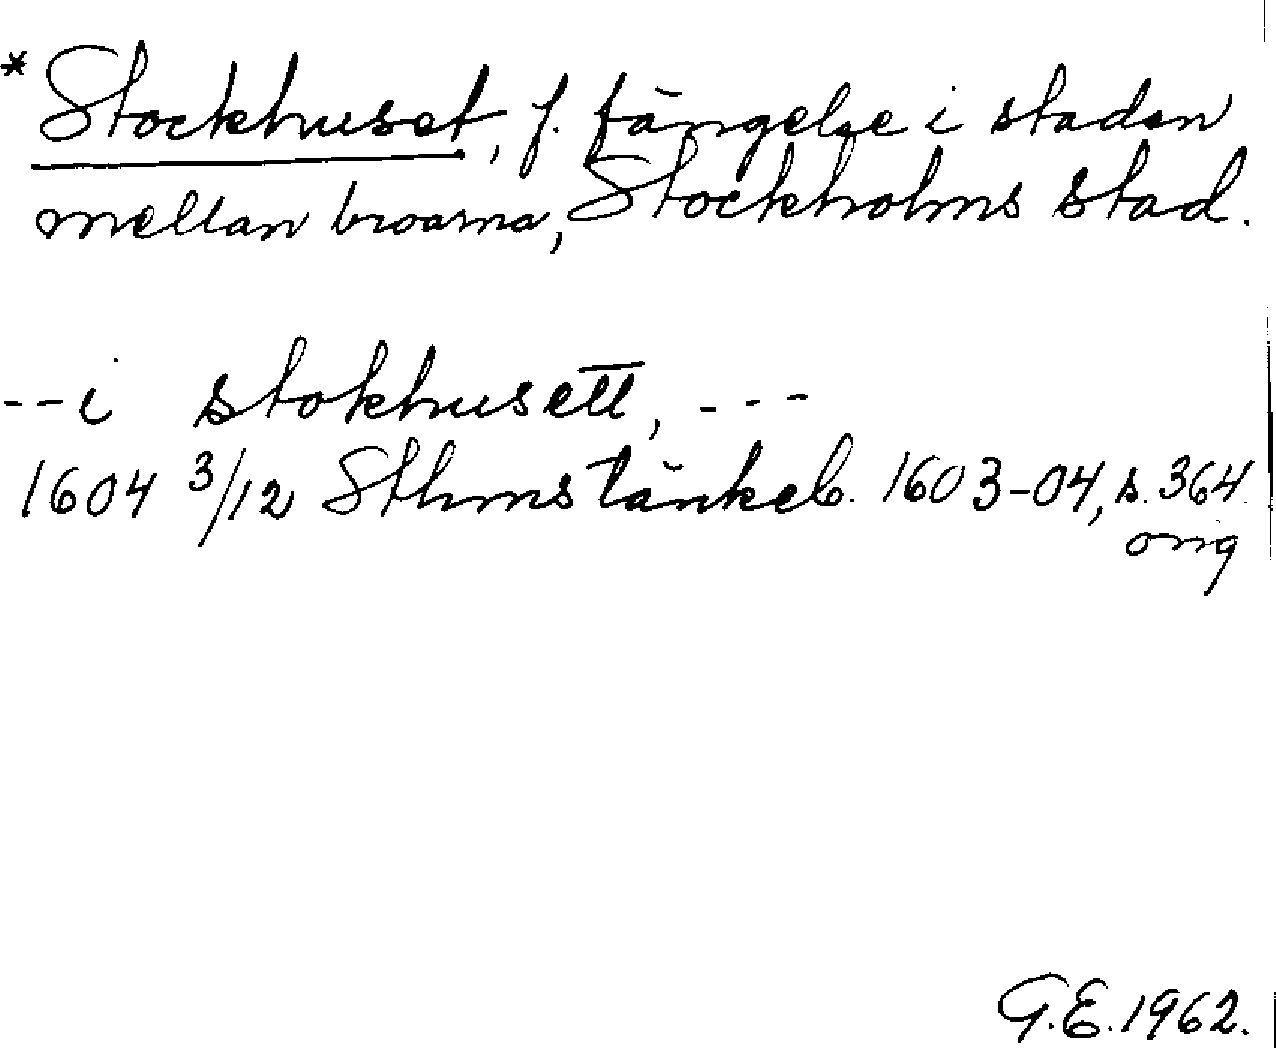 * Stockhuset, f. fängelse i staden
mellan broarna, Stockholms stad.
--i stokhusett, ---
1604 3/12 Sthms tänkeb. 1603-04, s. 364
orig
G.E. 1962.